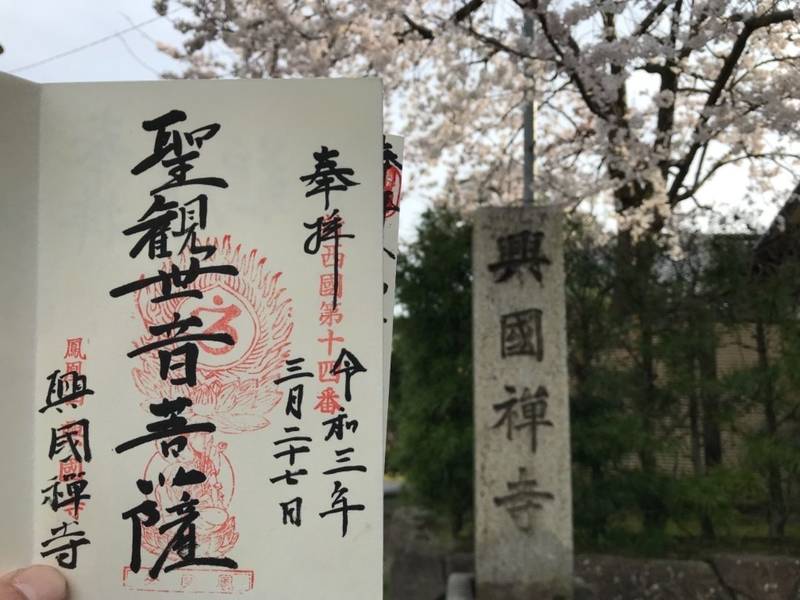 奉拝
西國第十四番
令和三年
三月二十七日
聖観世音菩薩
興国禅寺
興國禅寺